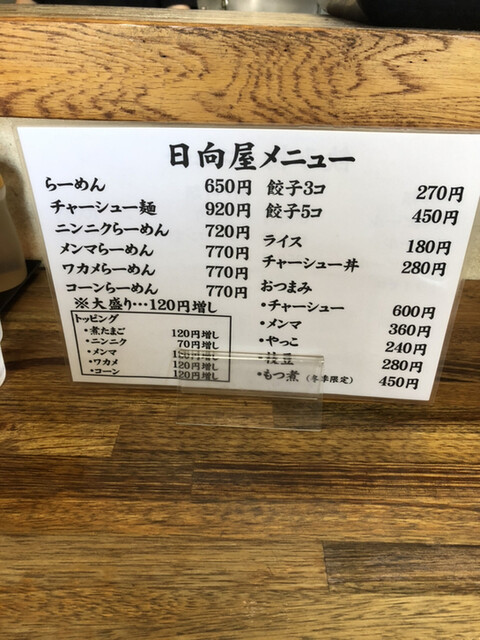 日向屋メニュー
らーめん 650円
チャーシュー麺 920円
ニンニクらーめん 720円
メンマらーめん 770円
ワカメらーめん 770円
コーンらーめん 770円
※大盛り…120円増し
トッピング
・煮たまご 120円増し
・ニンニク 70円増し
・メンマ 120円増し
・ワカメ 120円増し
・コーン 120円増し
餃子3コ 270円
餃子5コ 450円
ライス 180円
チャーシュー丼 280円
おつまみ
・チャーシュー 600円
・メンマ 360円
・やっこ 240円
・枝豆 280円
・もつ煮(冬季限定) 450円